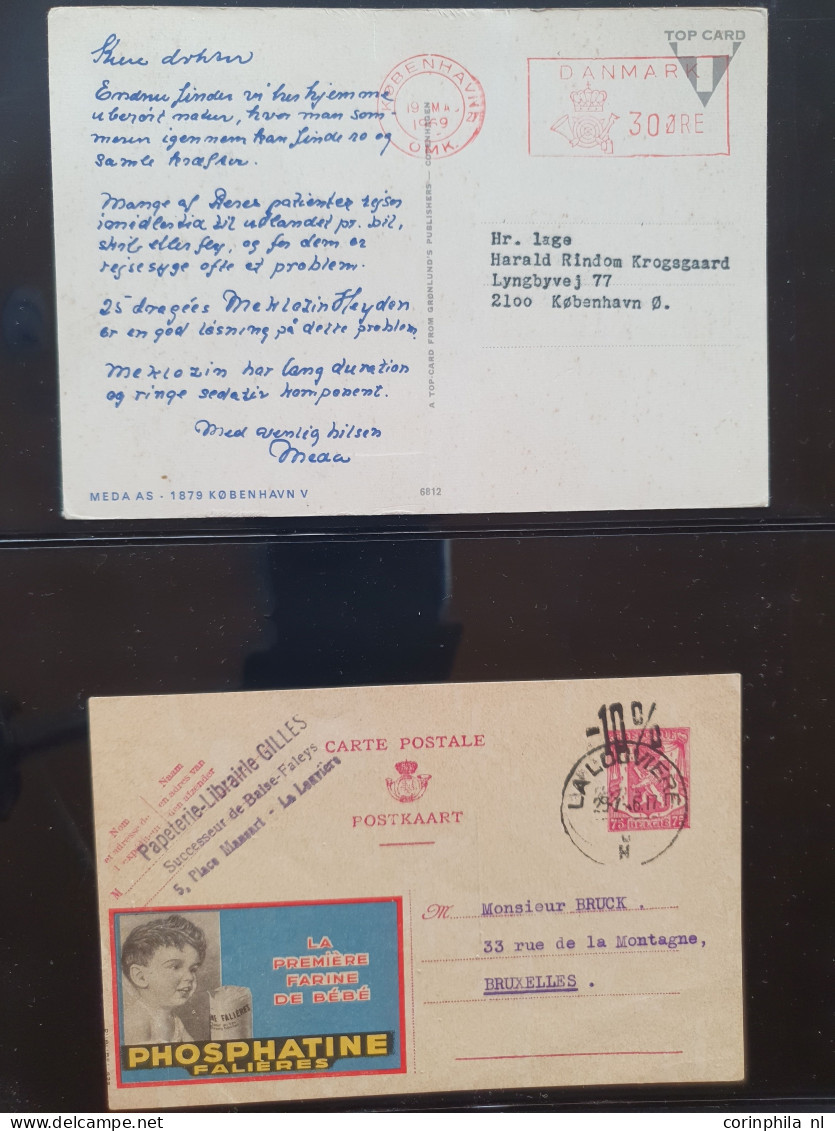 TOP CARD
Endnu findes vi her hjemme
uberört natur, hvor man som
igennem kan finde ro og
samle kræfter.
Mange af Deres patienter rejser
imidlertid til udlandet pr. bil,
skib eller fly, og for dem er
rejsesyge ofte et problem.
25 dragées Meklozin Heyden
er en god løsning på dette problem.
Meklozin har lang duration
og ringe sedativ komponent.
Med venlig hilsen
Meda
MEDA AS - 1879 KØBENHAVN V
6812
A TOP-CARD FROM GRØNLUND'S PUBLISHERS — COPENHAGEN
KØBENHAVN
19
1969
OMK.
DANMARK
30 ØRE
Hr. læge
Harald Rindom Krogsgaard
Lyngbyvej 77
2100 København Ø.
Nom
Naam
M
Papeterie-Librairie GILLES
Successeur de Balse-Faleys
5, Place Mansart - La Louvière
CARTE POSTALE
POSTKAART
-10%
LA LOUVIERE
75 BELGIE 75
M
Monsieur BRUCK .
33 rue de la Montagne,
BRUXELLES .
LA
PREMIÈRE
FARINE
DE BÉBÉ
PHOSPHATINE
FALIÈRES
corinphila nl